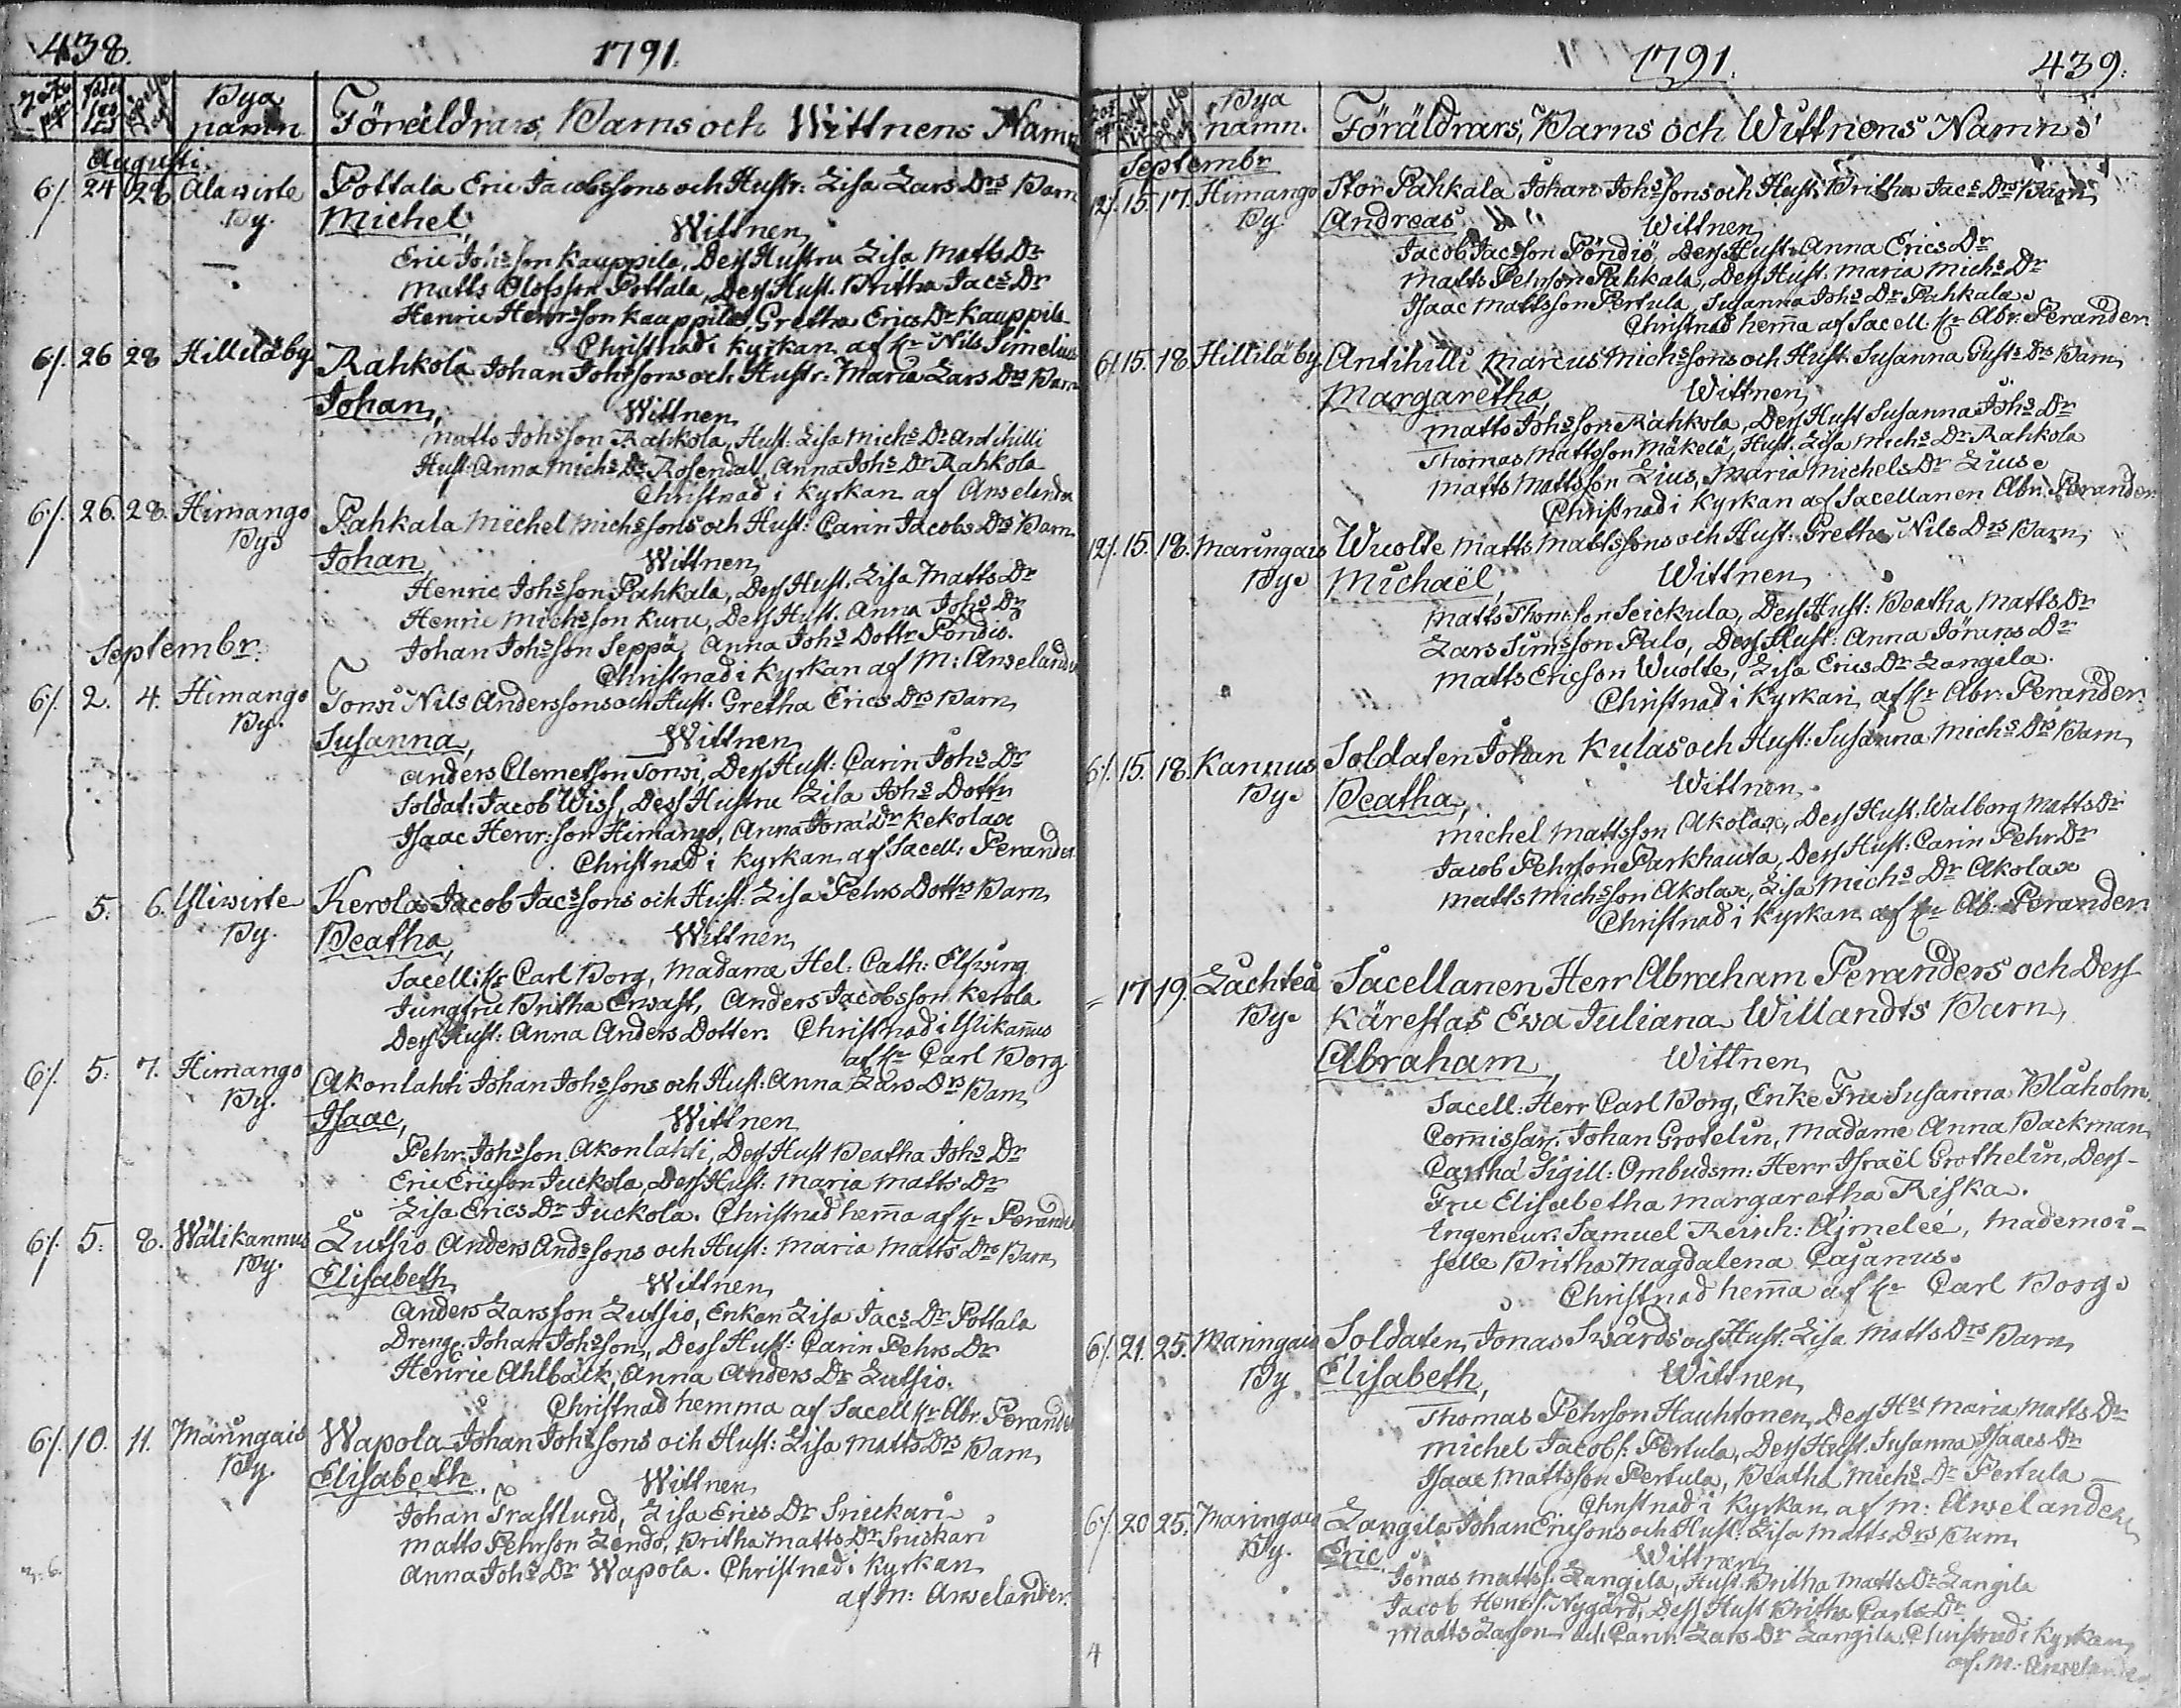 438.
1791.
Bya namn
Föräldrars, Barns och Wittnens Namn
Augusti.
6/. 24 28 Alawirte By. Pottala Eric Jacobssons och Hustr: Lisa Lars Drs Barn
Michel, Wittnen
Eric Johsson Kauppila, Dess Hustru Lisa Matts Dr
Matts Olofsson Pottala, Dess Hust. Britha Jacs Dr
Henric Henrsson Kauppila, Gretha Erics Dr Kauppila
Christnad i Kyrkan af Hr Nils Simelius
6/. 26 28 Hillilä by. Rahkola Johan Johssons och Hustr: Maria Lars Drs Barn
Johan, Wittnen
Matts Johsson Rahkola, Hust: Lisa Michs Dr Antihilli
Hust: Anna Michs Dr Rosendal, Anna Johs Dr Rahkola
Christnad i Kyrkan af Anselander
6/. 26. 28. Himango By Pahkala Michel Michssons och Hust: Carin Jacobs Drs Barn
Johan, Wittnen
Henric Johsson Pahkala, Dess Hust. Lisa Matts Dr
Henric Michsson Kuru, Dess Hust. Anna Johs Dr
Johan Johsson Seppä, Anna Johs Dottr Pöndiö.
Christnad i Kyrkan af M: Anselander
Septembr.
6/. 2. 4. Himango By. Torvi Nils Anderssons och Hust: Gretha Erics Drs Barn
Susanna, Wittnen
Anders Clemetson Torvi, Dess Hust: Carin Johs Dr
Soldat: Jacob Wiss, Dess Hustru Lisa Johs Dottr
Isaac Henr:son Himango, Anna Jona Dr Kekolax
Christnad i Kyrkan af Sacell: Perander
5. 6. Yliwirte By. Kerola Jacob Jacssons och Hust: Lisa Pehrs Dottrs Barn
Beatha, Wittnen
Sacell: Hr Carl Borg, Madame Hel: Cath: Elfving
Jungfru Britha Erwast, Anders Jacobsson Kerola
Dess Hust: Anna Anders Dotter. Christnad i Ylikannus
af Hr Carl Borg
6/. 5. 7. Himango By. Akonlahti Johan Johssons och Hust: Anna Lars Drs Barn
Isaac, Wittnen
Pehr Johsson Akonlahti, Dess Hust Beatha Johs Dr
Eric Ericson Juckola, Dess Hust: Maria Matts Dr
Lisa Erics Dr Juckola. Christnad hemma af Hr Perander
6/. 5. 8. Wälikannus By. Lutsio Anders Andssons och Hust: Maria Matts Drs Barn
Elisabeth Wittnen
Anders Larsson Lutsio, Enkan Lisa Jacs Dr Pottala
Dreng: Johan Johsson, Dess Hust: Carin Pehrs Dr
Henric Ahlbäck, Anna Anders Dr Lutsio.
Christnad hemma af Sacell Hr Abr. Perander
6/. 10. 11. Märingais By. Wapola Johan Johssons och Hust: Lisa Matts Drs Barn
Elisabeth. Wittnen
Johan Trastlund, Lisa Erics Dr Snickari
Matts Pehrson Lendo, Britha Matts Dr Snickari
Anna Johs Dr Wapola. Christnad i Kyrkan
af M: Anselander.
1791.
439.
Bya namn.
Föräldrars, Barns och Wittnens Namn
Septembr
12/. 15. 17. Himango By Stor Pahkala Johan Johssons och Hust. Britha Jacs Drs Barn
Andreas Wittnen
Jacob Jacsson Pöndiö, Dess Hust: Anna Erics Dr
Matts Pehrson Pahkala, Dess Hust. Maria Michs Dr
Isaac Mattsson Pertula, Susanna Johs Dr Pahkala.
Christnad hemma af Sacell. Hr Abr. Perander
6/. 15. 18. Hillilä by Antihilli Marcus Michssons och Hust. Susanna Gusts Drs Barn
Margaretha, Wittnen
Matts Johsson Rahkola, Dess Hust Susanna Johs Dr
Thomas Mattsson Mäkelä, Hust. Lisa Michs Dr Rahkola
Matts Mattsson Lius, Maria Michels Dr Lius.
Christnad i Kyrkan af Sacellanen Abr. Perander
12/. 15. 18. Maringais By. Wuolte Matts Mattssons och Hust: Gretha Nils Drs Barn,
Michaël, Wittnen
Matts Thomsson Seickula, Dess Hust: Beatha Matts Dr
Lars Simsson Palo, Dess Hust: Anna Jörans Dr
Matts Ericsson Wuolte, Lisa Erics Dr Langila.
Christnad i Kyrkan af Hr Abr: Perander.
6/. 15. 18. Kannus By. Soldaten Johan Kulas och Hust: Susanna Michs Drs Barn
Beatha, Wittnen
Michel Mattsson Akolax, Dess Hust. Walborg Matts Dr
Jacob Pehrson Parkhauta, Dess Hust: Carin Pehr Dr
Matts Michsson Akolax, Lisa Michs Dr Akolax
Christnad i Kyrkan af Hr Ab: Perander.
17 19. Lachteå By. Sacellanen Herr Abraham Peranders och Dess
Kärestas Ewa Juliana Willandts Barn,
Abraham, Wittnen
Sacell: Herr Carl Borg, Enke Fru Susanna Blåholm.
Commissar. Johan Grotelin, Madame Anna Backman
Cartha Sigill: Ombudsm: Herr Israël Grothelin, Dess
Fru Elisabetha Margaretha Riska.
Ingeneur: Samuel Reinh: Ajmeleé, Mademoi-
selle Britha Magdalena Cajanus.
Christnad hemma af Hr Carl Borg.
6/. 21. 25. Maringais By Soldaten Jonas Swärds och Hust. Lisa Matts Drs Barn
Elisabeth, Wittnen
Thomas Pehrson Hauhtonen, Dess Hu Maria Matts Dr
Michel Jacobs: Pertula, Dess Hust. Susanna Isaacs Dr
Isaac Mattsson Pertula, Beatha Michs Dr Pertula
Christnad i Kyrkan af M: Anselander
6/. 20 25. Maringais By. Langila Johan Ericsons och Hust: Lisa Matts Drs Barn
Eric Wittnen
Jonas Matts: Langila, Hust. Britha Matts Dr Langila
Jacob Henrs: Nygård, Dess Hust Britha Carls Dr
Matts Larson och Carin Lars Dr Langila. Christnad i Kyrkan
af M: Anselander
4